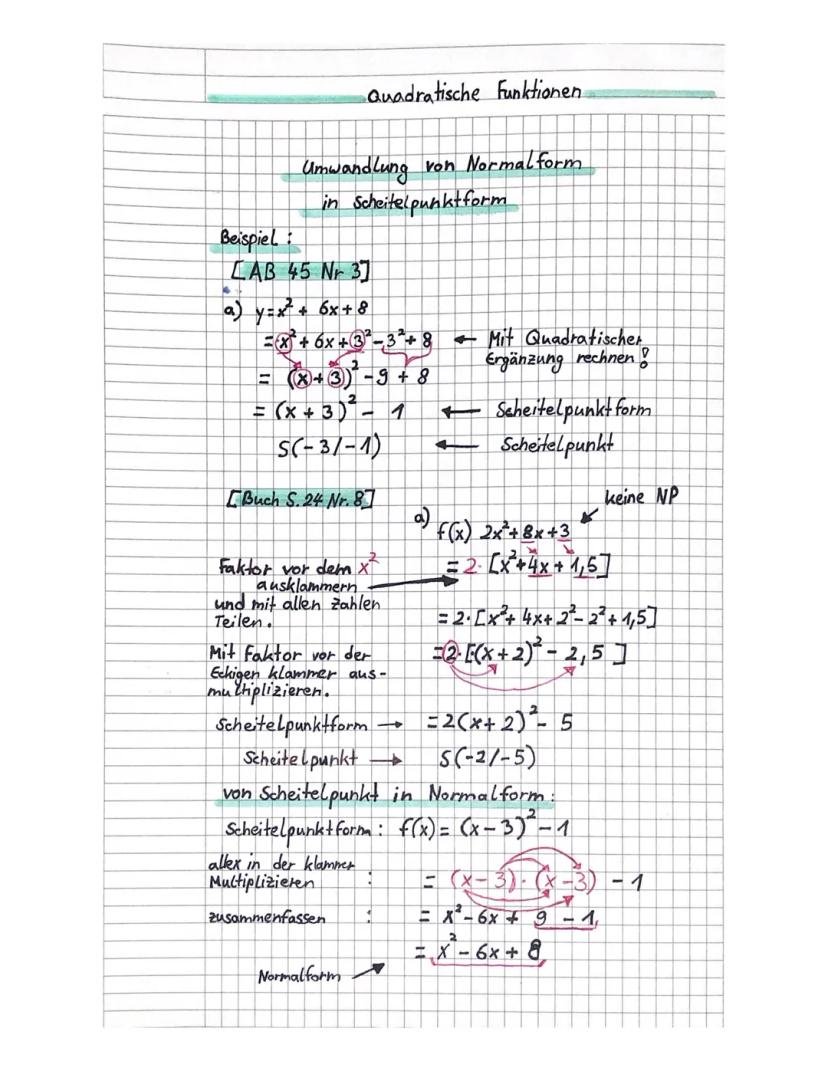 Quadratische Funktionen
Umwandlung von Normalform
in Scheitelpunktform
Beispiel :
[AB 45 Nr 3]
a) y=x² + 6x+8
=x² + 6x+3²-3²+8 ← Mit Quadratischer
Ergänzung rechnen !
= (x+3)² -9 + 8
= (x + 3)² - 1 ← Scheitelpunktform
S(-3/-1) ← Scheitelpunkt
[Buch S. 24 Nr. 8]
keine NP
a) f(x) 2x²+8x+3
= 2· [x²+4x + 1,5]
Faktor vor dem x²
ausklammern
und mit allen Zahlen
Teilen.
= 2·[x²+ 4x+ 2²- 2²+1,5]
=2·[(x+2)² - 2,5 ]
Mit Faktor vor der
Eckigen klammer aus-
multiplizieren.
Scheitelpunktform → = 2(x+2)² - 5
Scheitelpunkt → S(-2/-5)
von Scheitelpunkt in Normalform:
Scheitelpunktform : f(x) = (x-3)² -1
allex in der klammer
Multiplizieren : = (x-3)·(x-3) - 1
zusammenfassen : = x²-6x + 9 - 1
= x² - 6x + 8
Normalform